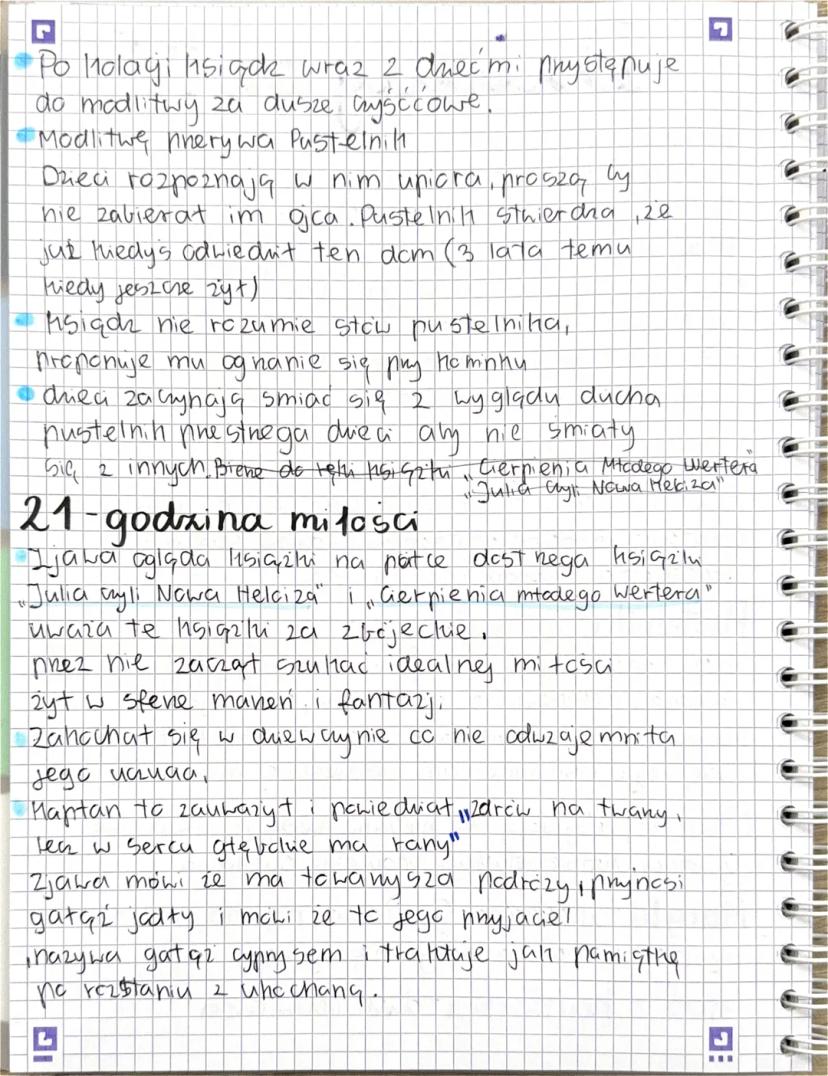 Po kolacji ksiądz wraz z dziećmi przystępuje
do modlitwy za dusze czyśćcowe.
Modlitwę przerywa Pustelnik
Dzieci rozpoznają w nim upiora, proszą by
nie zabierał im ojca. Pustelnik stwierdza, że
już kiedyś odwiedził ten dom (3 lata temu
kiedy jeszcze żył)
ksiądz nie rozumie słów pustelnika,
proponuje mu ogrzanie się przy kominku
dzieci zaczynają śmiać się z wyglądu ducha
pustelnik przestrzega dzieci aby nie śmiały
się z innych. Bierze do ręki książki „Cierpienia Młodego Wertera"
„Julia czyli Nowa Heloiza"
21-godzina miłości
Zjawa ogląda książki na półce dostrzega książki
„Julia czyli Nowa Heloiza" i „Cierpienia młodego Wertera"
uważa te książki za zbójeckie.
przez nie zaczął szukać idealnej miłości
żył w sferze marzeń i fantazji.
Zakochał się w dziewczynie co nie odwzajemniła
jego uczucia.
Kapłan to zauważył i powiedział „zdrów na twarzy,
lecz w sercu głębokie ma rany"
Zjawa mówi że ma towarzysza podróży, przynosi
gałąź jodły i mówi że to jego przyjaciel
, nazywa gałąź cyprysem i traktuje jak pamiątkę
po rozstaniu z ukochaną.